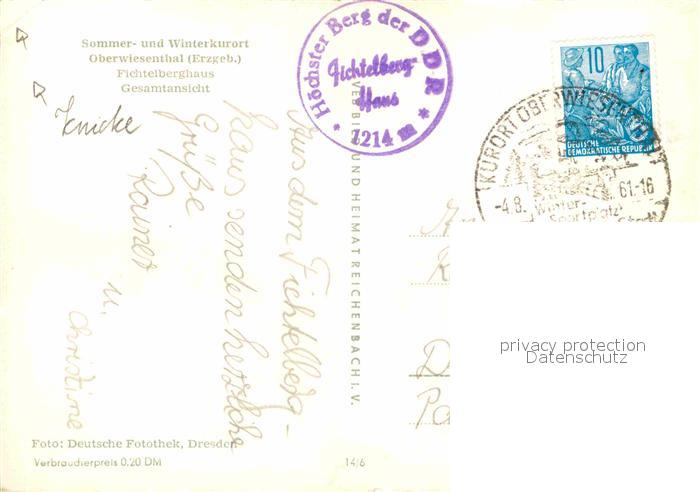 Sommer- und Winterkurort
Oberwiesenthal (Erzgeb.)
Fichtelberghaus
Gesamtansicht
Knicke
Höchster Berg der DDR
Fichtelberg-
Haus
* 1214 m *
10
DEUTSCHE
DEMOKRATISCHE REPUBLIK
KURORT OBERWIESENTHAL
-4.8. 61-16
Winter-
Sportplatz
Aus dem Fichtelberg-
haus senden herzliche
Grüße
Rainer u.
Christine
VERBILD UND HEIMAT REICHENBACH I. V.
privacy protection
Datenschutz
Foto: Deutsche Fotothek, Dresden
Verbraucherpreis 0,20 DM
14/6